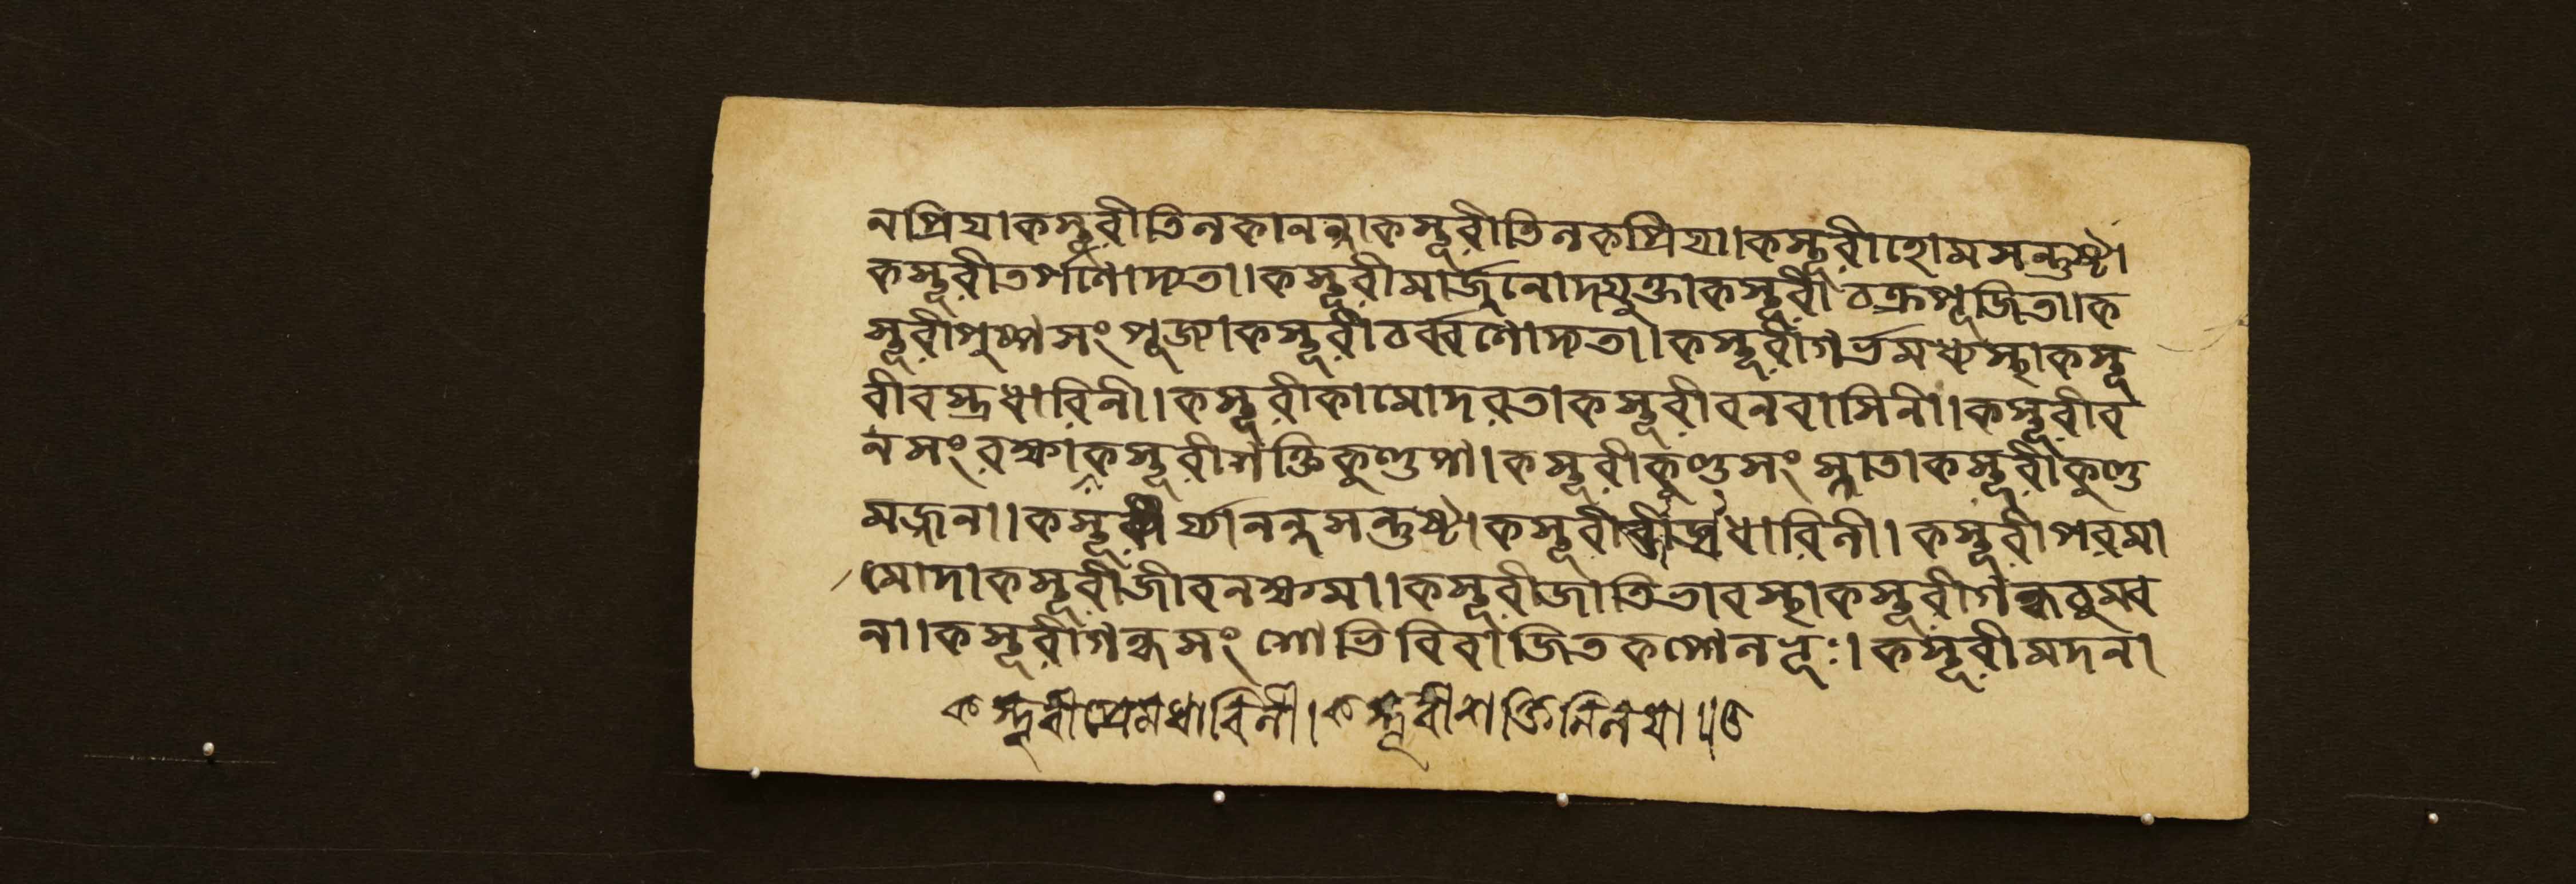 নপ্রিয়া কস্তূরীতিলকানন্দা কস্তূরীতিলকপ্রিয়া। কস্তূরীহোমসন্তুষ্টা
কস্তূরীতর্পণোদ্যতা। কস্তূরীমার্জ্জনোদ্যুক্তা কস্তূরীচক্রপূজিতা। ক
স্তূরীপুষ্পসংপূজ্যা কস্তূরীচর্ব্বণোদ্যতা। কস্তূরীগর্ভমধ্যস্থা কস্তূ
রীবস্ত্রধারিণী। কস্তূরীকামোদরতা কস্তূরীবনবাসিনী। কস্তূরীব
নসংরক্ষা কস্তূরীশক্তিকুণ্ডপা। কস্তূরীকুণ্ডসংস্নাতা কস্তূরীকুণ্ড
মজ্জনা। কস্তূরী ানন্দসন্তুষ্টা কস্তূরী ধারিণী। কস্তূরীপরমা
মোদা কস্তূরীজীবনক্ষমা। কস্তূরীজাতিভাবস্থা কস্তূরীগন্ধচুম্ব
না। কস্তূরীগন্ধসংশোভিবিরাজিতকপালভূঃ। কস্তূরীমদনা
কস্তূরীপ্রেমধারিণী। কস্তূরীশক্তিনিলয়া॥